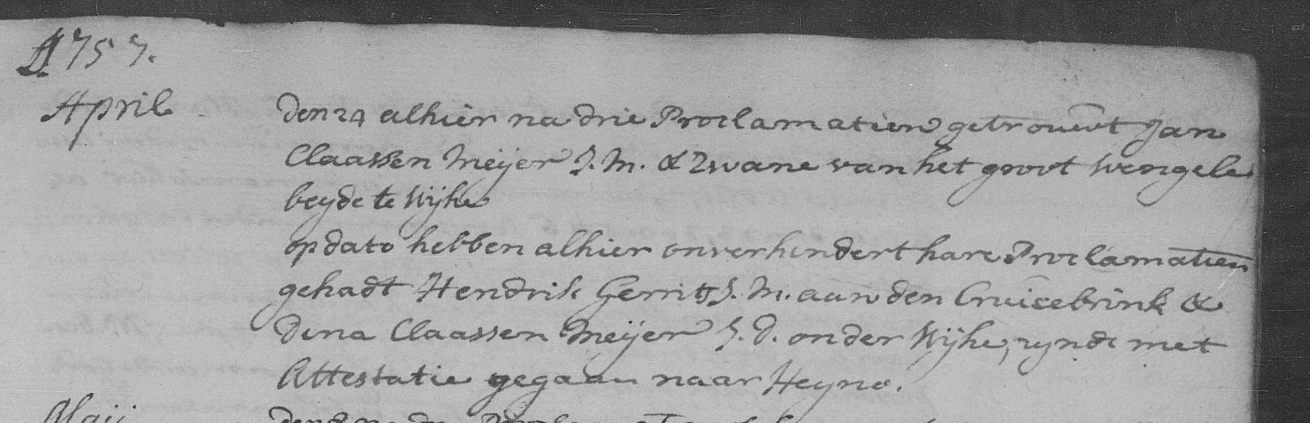 1757.
April den 24 alhier na drie Proclamatien getrouwt Jan
Claassen Meijer J. M. & Zwane van het groot Wengele
beyde te Wijhe
op dato hebben alhier onverhindert hare Proclamatien
gehadt Hendrik Gerrits J. M. aan den Cruicebrink &
Dina Claassen Meijer J. D. onder Wijhe, zynde met
Attestatie gegaan naar Heyno.
Maij